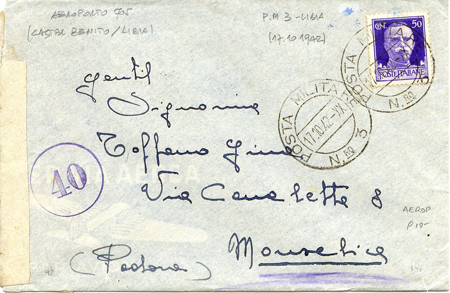 AEROPORTO 705
(CASTEL BENITO/LIBIA)
P.M 3 - LIBIA
(17.10.1942)
CN. 50
POSTE ITALIANE
POSTA MILITARE
N. 3
POSTA MILITARE
17.10.42.XX
N. 3
Gentil
Signorina
Toffano Gina
40
Via Canaletta 8
AEROP
(Padova)
Monselice